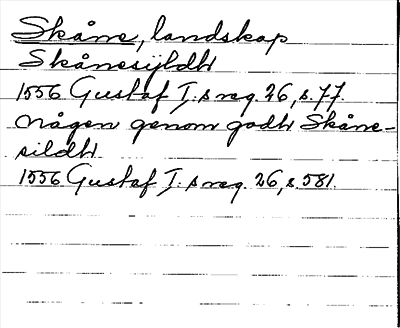 Skåne, landskap
Skånesijldh
1556 Gustaf I:s reg. 26, s. 77.
någen genom godh Skåne-
sildh
1556 Gustaf I:s reg. 26, s. 581.